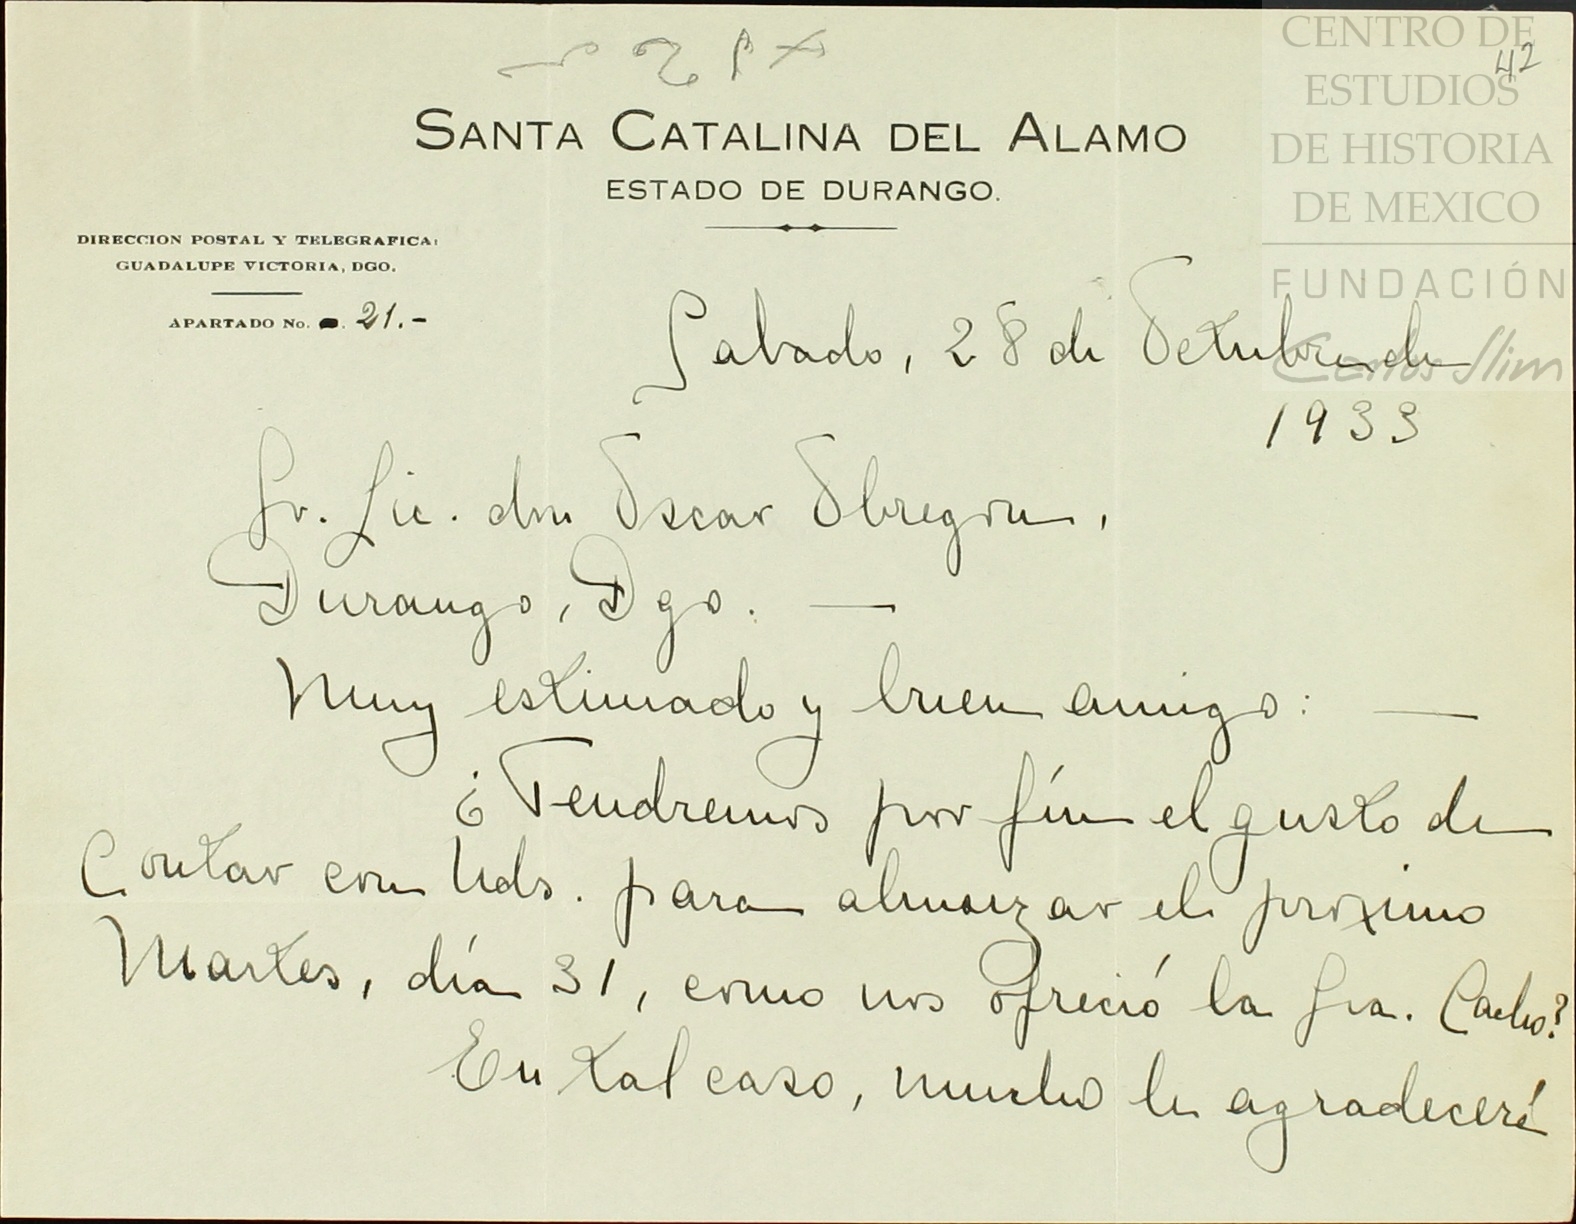 42
SANTA CATALINA DEL ALAMO
ESTADO DE DURANGO.
DIRECCION POSTAL Y TELEGRAFICA:
GUADALUPE VICTORIA, DGO.
APARTADO No. 21.-
Sabado, 28 de Octubre de
1933
Sr. Lic. don Oscar Obregon,
Durango, Dgo. —
Muy estimado y buen amigo: —
¿Tendremos por fín el gusto de
Contar con Uds. para almorzar el proximo
Martes, día 31, como nos ofreció la Sra. Cacho?
En tal caso, mucho le agradeceré
CENTRO DE
ESTUDIOS
DE HISTORIA
DE MEXICO
FUNDACIÓN
Carlos Slim